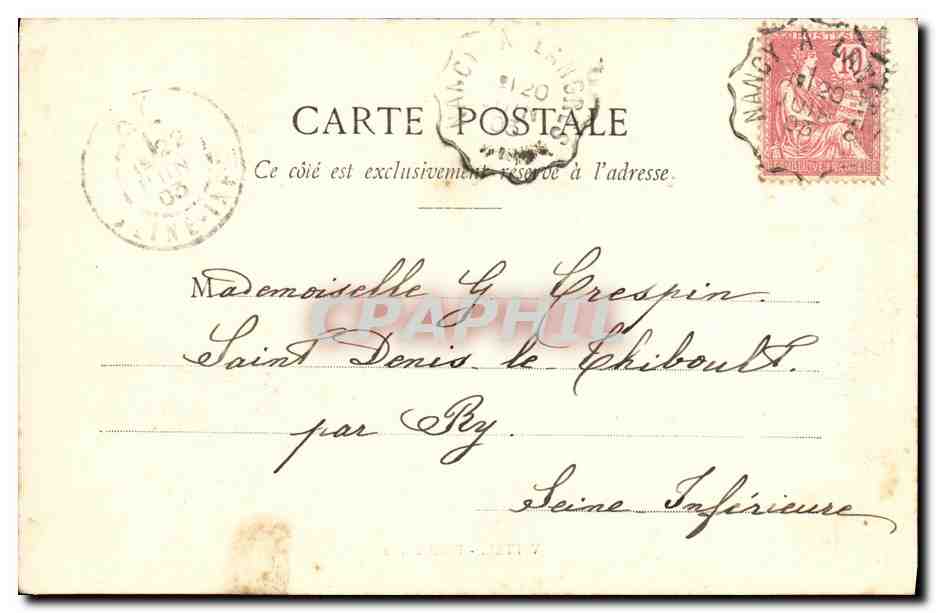 NANCY A LANGRES
20
POSTES
10
NANCY A LANGRES
20
RÉPUBLIQUE FRANÇAISE
CARTE POSTALE
Ce côté est exclusivement réservé à l'adresse.
22
JUIN
03
SEINE-INF
Mademoiselle G Crespin.
CPAPHIL
Saint Denis-le Thiboult.
par Ry.
Seine Inférieure